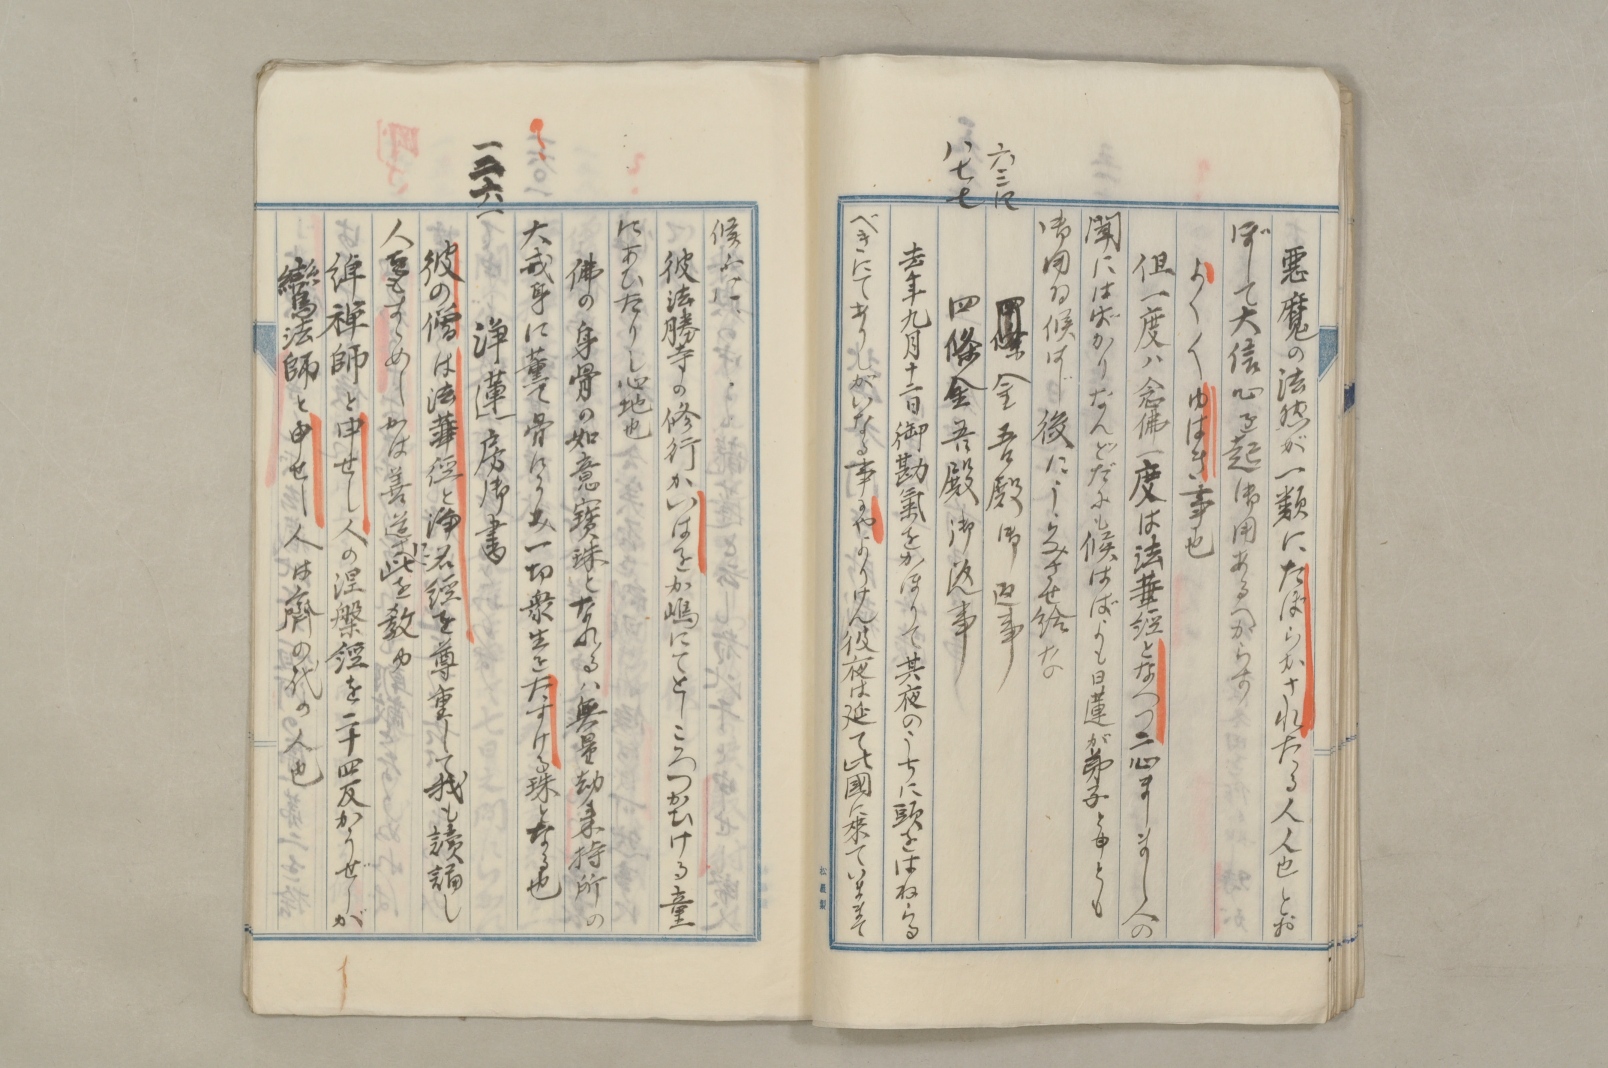 悪魔の法然が一類にたぼらかされたる人人也とお
ぼして大信心を起御用あるべからず
よくよくゆはき事也
但一度ハ念佛一度は法華経となへつ二心ましまし人の
聞にはばかりなんどだにも候はばよも日蓮が弟子と申とも
御用ゐ候はじ後にうらみさせ給な
六三に
四條金吾殿御返事
八七七
四條金吾殿御返事
去年九月十二日御勘氣をかほりて其夜のうちに頭をはねらる
べきにてありしがいかなる事にやよりけん彼夜は延て此國に来ていままで
候に
彼法勝寺の修行がいはをが嶋にてとしころつかひける童
にあひたりし心地也
佛の身骨の如意寶珠となれるハ無量劫来持所の
大戒身に薫て骨にそみ一切衆生をたすける珠となる也
一二六一
浄蓮房御書
彼の僧は法華経と浄名経を尊重して我も讀誦し
人をもすゝめしかは善導此を教ゆ
綽禅師と申せし人の涅槃経を二十四反かうぜしが
鸞法師と申せし人は齊の代の人也
松屋製